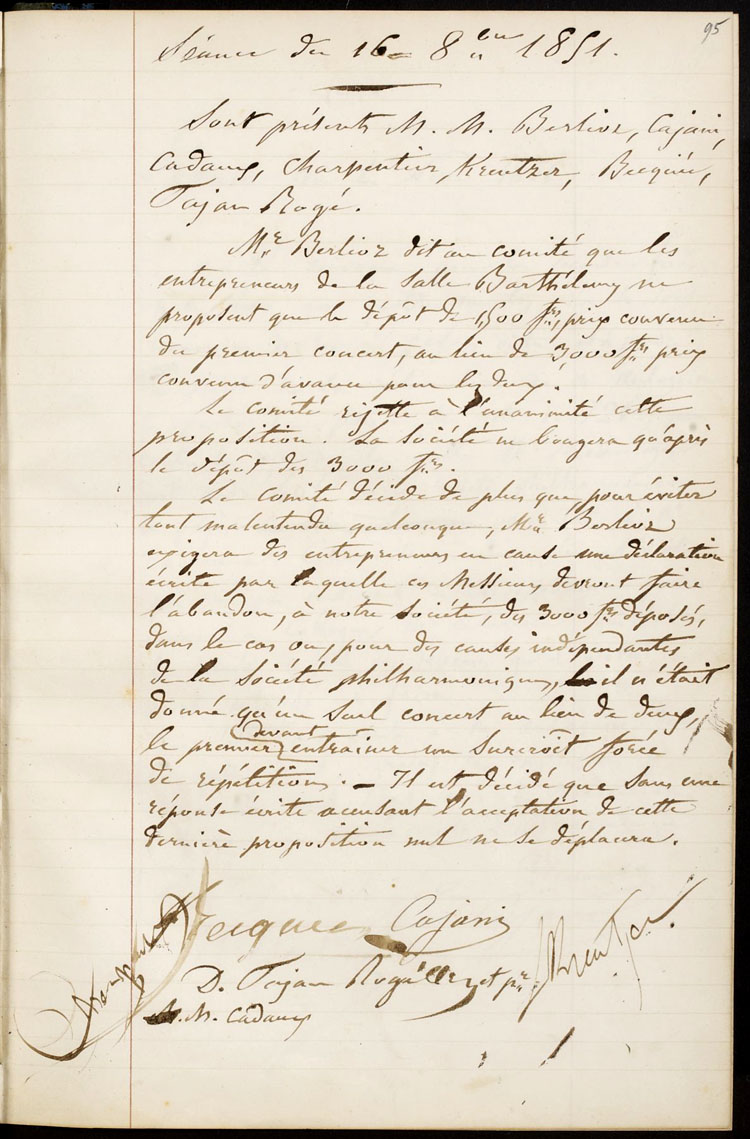 95
Séance du 16 8bre 1851.
Sont présents M. M. Berlioz, Cajani,
Cadaux, Charpentier, Kreutzer, Becquié,
Tajan Rogé.
Mr. Berlioz dit au comité que les
entrepreneurs de la Salle Barthélemy ne
proposent que le dépôt de 1,500 frs, prix convenu
du premier concert, au lieu de 3,000 frs prix
convenu d'avance pour les deux.
Le comité rejette à l'unanimité cette
proposition. La Société ne bougera qu'après
le dépôt des 3000 frs.
Le comité décide de plus que, pour éviter
tout malentendu quelconque, Mr. Berlioz
exigera des entrepreneurs en cause une déclaration
écrite par laquelle ces Messieurs devront faire
l'abandon, à notre Société, des 3000 frs déposés,
dans le cas ou, pour des causes indépendantes
de la Société philharmonique, il n'était
donné qu'un seul concert au lieu de deux,
le premier devant entraîner un surcroît forcé
de répétitions. — Il est décidé que sans une
réponse écrite accusant l'acceptation de cette
dernière proposition nul ne se déplacera.
Becquié Cajani
Charpentier
Kreutzer
D. Tajan Rogé et pr
M. M. Cadaux